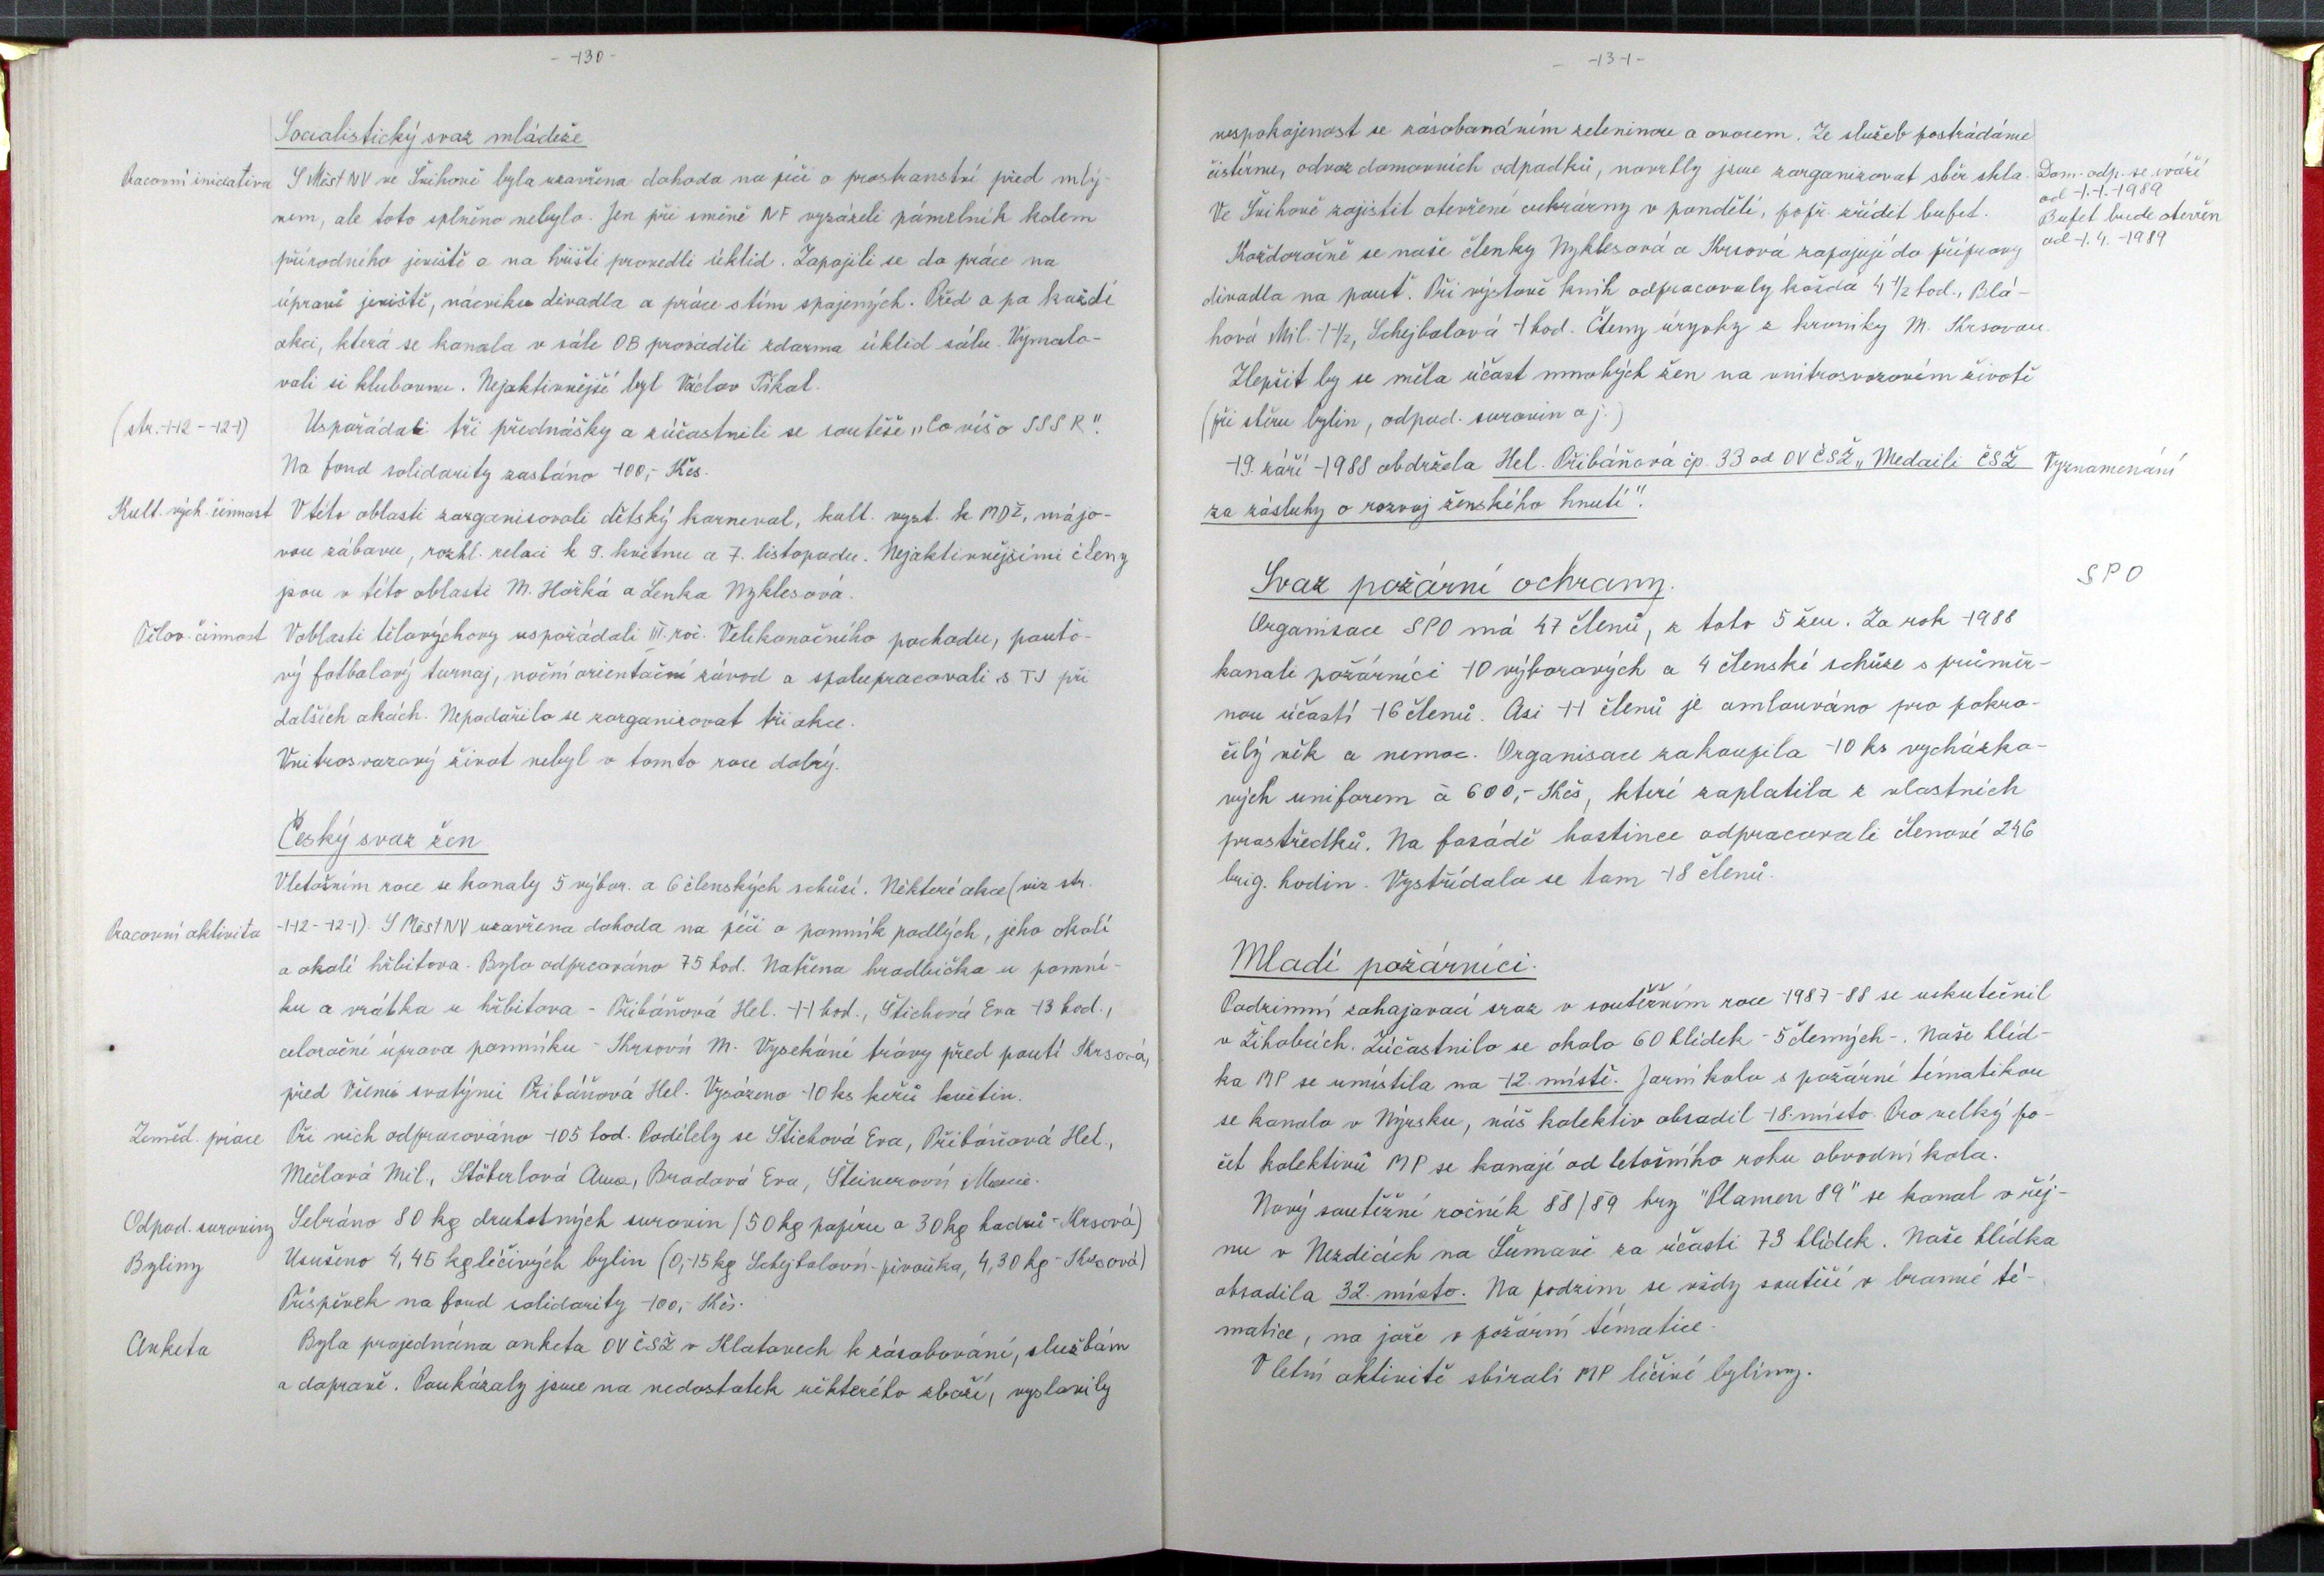 - 130 -
Socialistický svaz mládeže
Pracovní iniciativa
S MěstNV ve Švihově byla uzavřena dohoda na péči o prostranství před mlý-
nem, ale toto splněno nebylo. Jen při směně NF vyzářeli pámelník kolem
přírodního jeviště a na hřišti provedli úklid. Zapojili se do práce na
úpravě jeviště, nácviku divadla a práce s tím spojených. Před a po každé
akci, která se konala v sále OB prováděli zdarma úklid sálu. Vymalo-
vali si klubovnu. Nejaktivnější byl Václav Pikal.
(str. 112 - 121)
Uspořádali tři přednášky a zúčastnili se soutěže „Co víš o SSSR".
Na fond solidarity zasláno 100,- Kčs.
Kult. vých. činnost
V této oblasti zorganisovali dětský karneval, kult. vyst. k MDŽ, májo-
vou zábavu, rozhl. relaci k 9. květnu a 7. listopadu. Nejaktivnějšími členy
jsou v této oblasti M. Hořká a Lenka Nyklesová.
Tělov. činnost
V oblasti tělovýchovy uspořádali III. roč. Velikonočního pochodu, pouťo-
vý fotbalový turnaj, noční orientační závod a spolupracovali s TJ při
dalších akcích. Nepodařilo se zorganizovat tři akce.
Vnitrosvazový život nebyl v tomto roce dobrý.
Český svaz žen
V letošním roce se konaly 5 výbor. a 6 členských schůsí. Některé akce (viz str.
Pracovní aktivita
112 - 121). S MěstNV uzavřena dohoda na péči o pomník padlých, jeho okolí
a okolí hřbitova. Bylo odpracováno 75 hod. Natřena hradbička u pomní-
ku a vrátka u hřbitova - Přibáňová Hel. 11 hod., Štichová Eva 13 hod.,
celoroční úprava pomníku - Krsová M. Vysekáné trávy před poutí Krsová,
před Všemi svatými Přibáňová Hel. Vysázeno 10 ks keřů květin.
Zeměd. práce
Při nich odpracováno 105 hod. Podílely se Štichová Eva, Přibáňová Hel.,
Mečlová Mil., Stöberlová Anna, Bradová Eva, Šteinerová Marie.
Odpad. suroviny
Sebráno 80 kg druhotných surovin (50 kg papíru a 30 kg hadrů - Krsová)
Byliny
Usušeno 4,45 kg léčivých bylin (0,15 kg Schejbalová - pivoňka, 4,30 kg - Krsová)
Příspěvek na fond solidarity 100,- Kčs.
Anketa
Byla projednána anketa OV ČSŽ v Klatovech k zásobování, službám
a dopravě. Poukázaly jsme na nedostatek některého zboží, vyslovily
- 131 -
nespokojenost se zásobanáním zeleninou a ovocem. Ze služeb postrádáme
čistírnu, odvoz domovních odpadků, navrhly jsme zorganizovat sběr skla.
Ve Švihově zajistit otevření cukrárny v pondělí, popř. zřídit bufet.
Dom. odp. se sváží
od 1.1.1989
Bufet bude otevřen
od 1.4.1989
Každoročně se naše členky Nyklesová a Krsová zapojují do přípravy
divadla na pouť. Při výstavě knih odpracovaly každá 4 1/2 hod., Blá-
hová Mil. 1 1/2, Schejbalová 1 hod. Čteny úryvky z kroniky M. Krsovou.
Zlepšit by se měla účast mnohých žen na vnitrosvazovém životě
(při sběru bylin, odpad. surovin a j.)
19. září 1988 obdržela Hel. Přibáňová čp. 33 od OV ČSŽ „Medaili ČSŽ
za zásluhy o rozvoj ženského hnutí".
Vyznamenání
Svaz požární ochrany.
SPO
Organisace SPO má 47 členů, z toto 5 žen. Za rok 1988
konali požárníci 10 výborových a 4 členské schůze s průměr-
nou účastí 16 členů. Asi 11 členů je omlouváno pro pokro-
čilý věk a nemoc. Organisace zakoupila 10 ks vycházko-
vých uniforem à 600,- Kčs, které zaplatila z vlastních
prostředků. Na fasádě hostince odpracovali členové 246
brig. hodin. Vystřídalo se tam 18 členů.
Mladí požárníci.
Podzimní zahajovací sraz v soutěžním roce 1987-88 se uskutečnil
v Žihobcích. Zúčastnilo se okolo 60 hlídek - 5 členných -. Naše hlíd-
ka MP se umístila na 12. místě. Jarní kolo s požární tématikou
se konalo v Nýrsku, náš kolektiv obsadil 18. místo. Pro velký po-
čet kolektivů MP se konají od letošního roku obvodní kola.
Nový soutěžní ročník 88/89 hry "Plamen 89" se konal v říj-
nu v Nezdicích na Šumavě za účasti 73 hlídek. Naše hlídka
obsadila 32. místo. Na podzim se vždy soutěží v branné té-
matice, na jaře v požární tématice.
V letní aktivitě sbírali MP léčivé byliny.